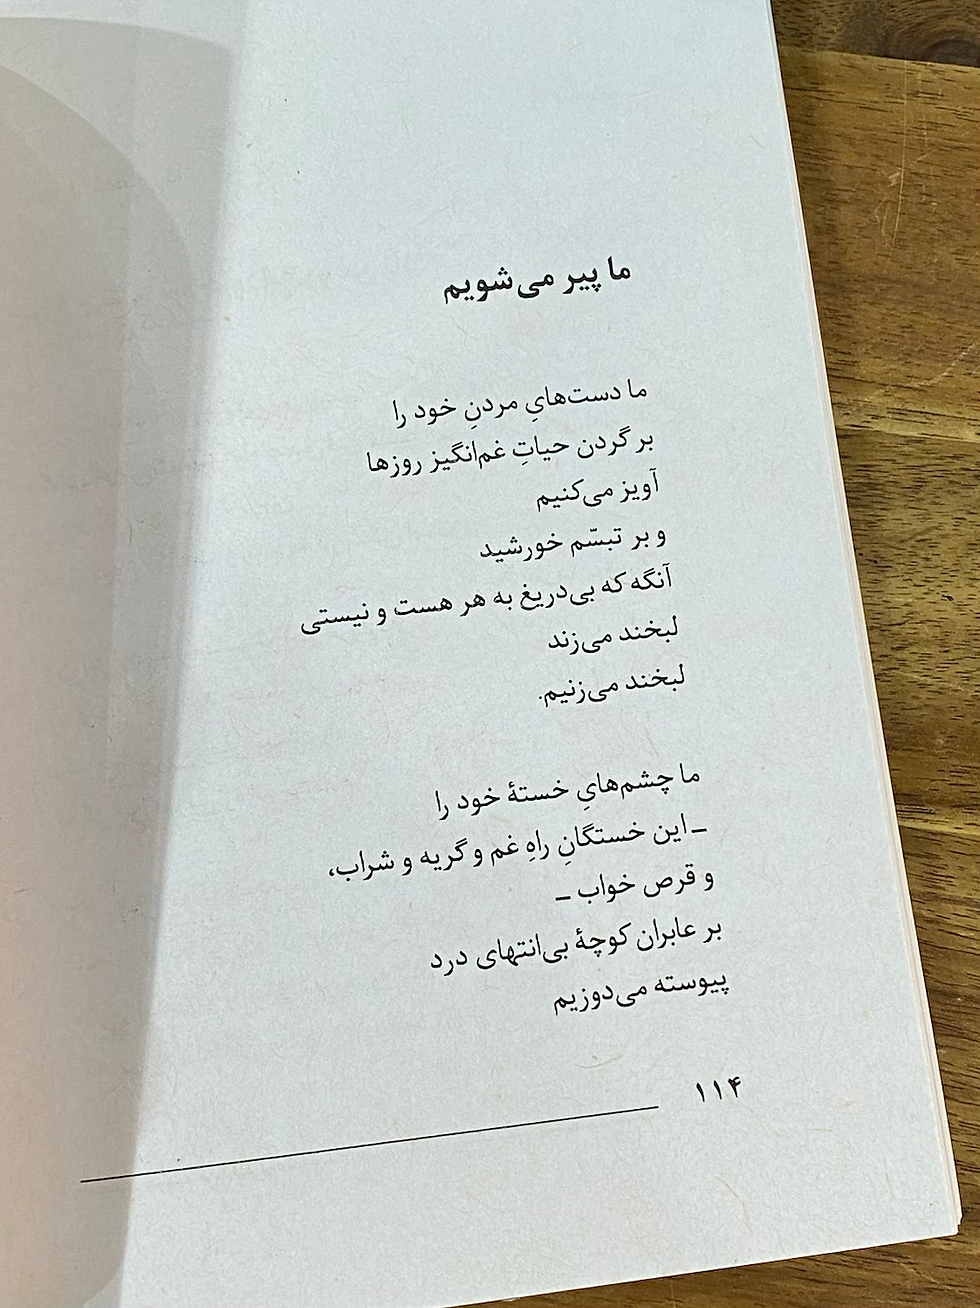 ما پیر می‌شویم
ما دست‌هایِ مردنِ خود را
بر گردن حیاتِ غم‌انگیز روزها
آویز می‌کنیم
و بر تبسّم خورشید
آنگه که بی‌دریغ به هر هست و نیستی
لبخند می‌زند
لبخند می‌زنیم.
ما چشم‌هایِ خستهٔ خود را
ــ این خستگانِ راهِ غم و گریه و شراب،
و قرص خواب ــ
بر عابران کوچهٔ بی‌انتهای درد
پیوسته می‌دوزیم
۱۱۴